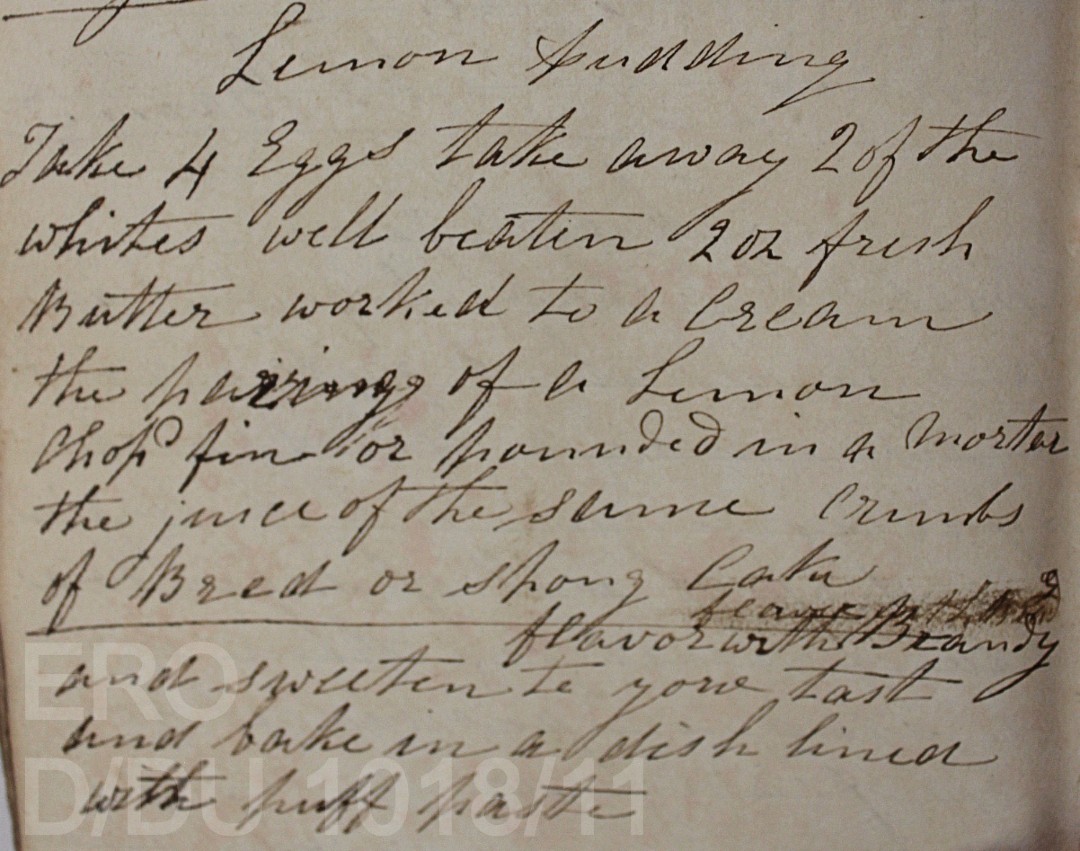 Lemon Pudding
Take 4 Eggs take away 2 of the
whites well beaten 2 oz fresh
Butter worked to a Cream
the pairings of a Lemon
Chopd fine or pounded in a Mortar
the juice of the same Crumbs
of Bred or spong Cake
flavor with Brandy
and sweeten to yowr tast
and bake in a dish lined
with puff paste
ERO
D/DU 1018/11